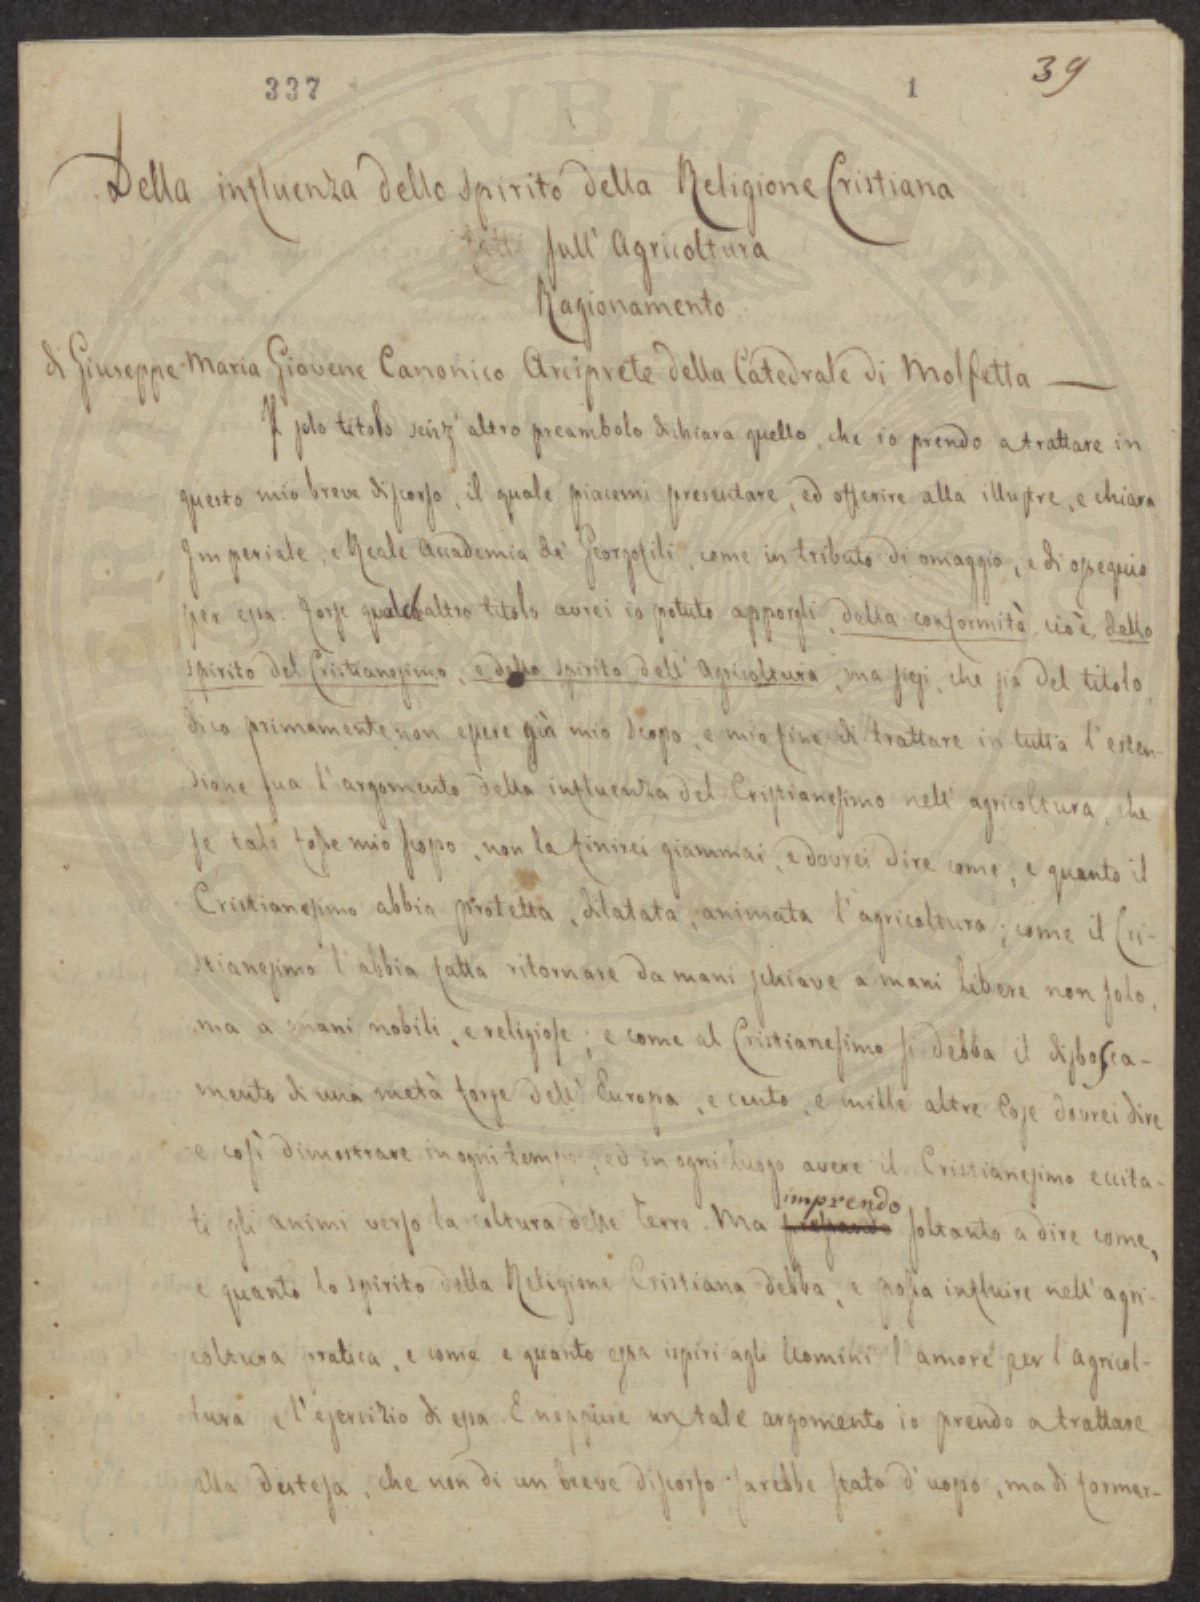 337 1 39
Della influenza dello spirito della Religione Cristiana
sull' Agricoltura
Ragionamento
di Giuseppe Maria Giovene Canonico Arciprete della Catedrale di Molfetta —
Il solo titolo senz' altro preambolo dichiara quello, che io prendo a trattare in
questo mio breve discorso, il quale piacemi presentare, ed offerire alla illustre, e chiara
Imperiale, e Reale Accademia de' Georgofili, come in tributo di omaggio, e di ossequio
per essa. Forse qualch altro titolo avrei io potuto apporgli, della conformità cioè, dello
spirito del Cristianesimo, e dello spirito dell' Agricoltura, ma siesi, che sia del titolo,
dico primamente non essere già mio scopo, e mio fine di trattare in tutta l' esten-
sione sua l' argomento della influenza del Cristianesimo nell' agricoltura, che
se tale fosse mio scopo, non la finirei giammai, e dovrei dire come, e quanto il
Cristianesimo abbia protetta, dilatata, animata l' agricoltura; come il Cri-
stianesimo l' abbia fatta ritornare da mani schiave a mani libere non solo,
ma a mani nobili, e religiose; e come al Cristianesimo si debba il disbosca-
mento di una metà forse dell' Europa, e cento, e mille altre cose dovrei dire
e così dimostrare in ogni tempo, ed in ogni luogo avere il Cristianesimo eccita-
ti gli animi verso la coltura delle Terre. Ma imprendo soltanto a dire come,
e quanto lo spirito della Religione Cristiana debba, e possa influire nell' agri-
coltura pratica, e come e quanto essa ispiri agli Uomini l' amore per l' agricol-
tura e l' esercizio di essa. E neppure un tale argomento io prendo a trattare
alla distesa, che non di un breve discorso sarebbe stato d' uopo, ma di formar-